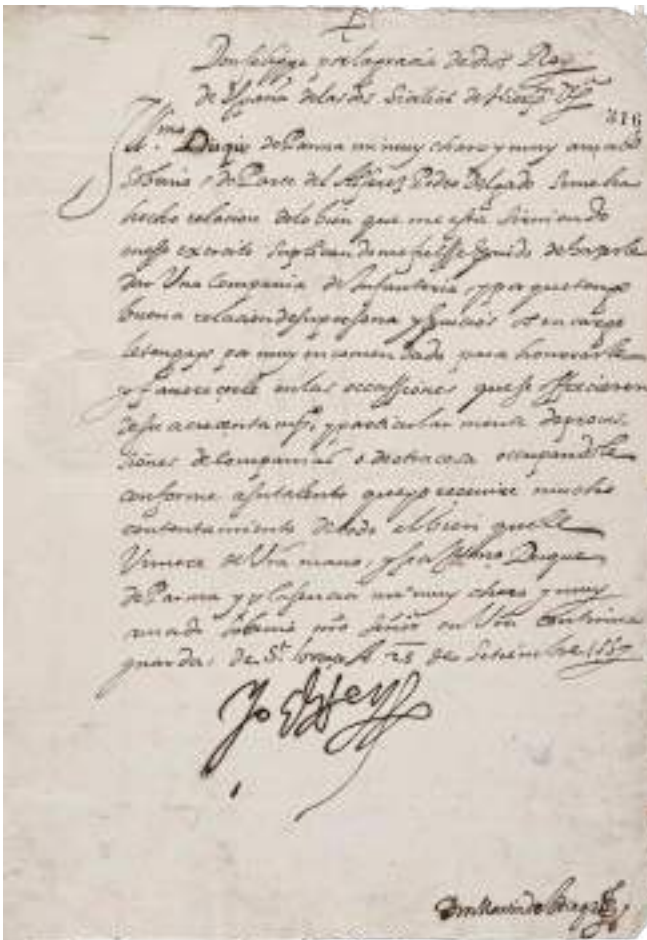 Don felippe por la gracia de dios Rey
de España de las dos Sicilias de
316
Ill.mo Duque de Parma mi muy charo y muy amado
Sobrino, de Parte del Alferez Pedro Delgado se me ha
hecho relacion de lo bien que me esta sirviendo
en esse exercito suplicandome fuesse servido de hazerle
dar Una Compania de Infanteria, y porque tengo
buena relacion de su persona y servicios os encargo
le tengays por muy encomendado para honrrarle
y favorecerle en las occassiones que se offrecieren
de su acrecentami.o, y particular mente de provis
siones de Companias o de otra cosa occupandole
conforme a su talento que yo recevire mucho
contentamiento de todo el bien que el
de Vra mano, y sea Ill.mo Duque
de Parma y Plasencia mi muy charo y muy
amado Sobrino nro Señor en Vra continua
guarda, de St. Lorenzo A 25 de Setiembre 1587
Yo El Rey
Don Martin de